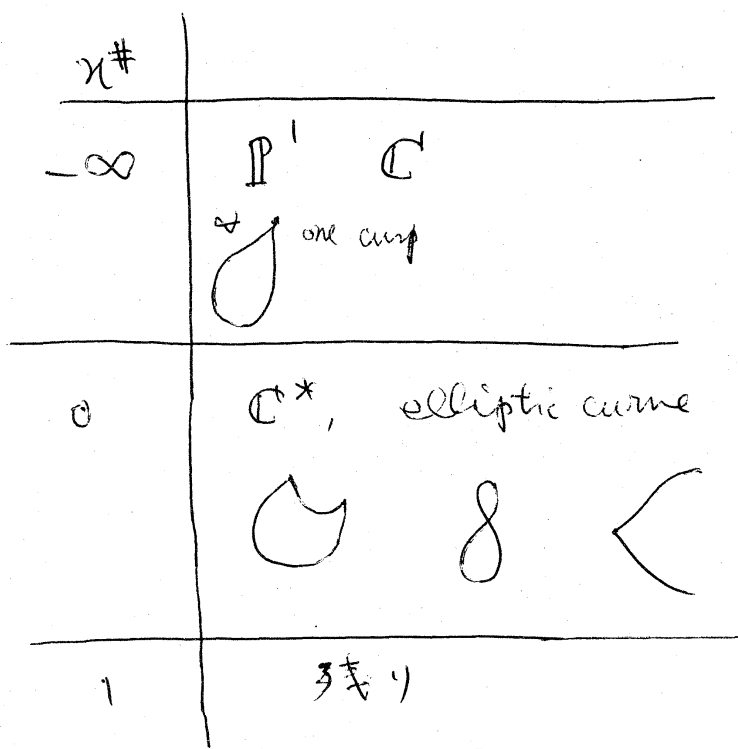 ϰ#
-∞ ℙ¹ ℂ
one cusp
0 ℂ*, elliptic curve
1 残り